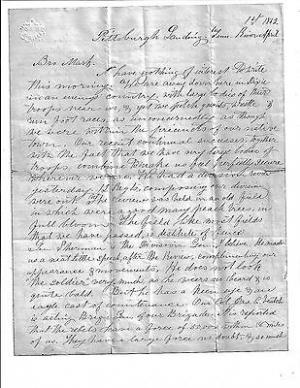 1st 1862
Pittsburgh Landing, Tenn River April
Bro Mark.
I have nothing of interest to write
this morning. We are away down here in Dixie
in an enemy's country, with large bodies of their
troops near us, & yet we pitch quoits, wrestle &
run foot races, as unconcernedly as though
we were within the precincts of our native
town. Our recent continual successes together
with the fact that we have very large bodies of
troops common to make us feel perfectly secure
wherever we are. We had a division
yesterday. 12 Regts, composing our division
were out. The review was held in an old field
in which were great many peach trees in
full bloom. The field like most fields
that we have passed is destitute of fences.
Gen Sherman is the Division Gen. I believe. He made
us a neat little speech after the Review, complimenting our
appearance & movements. He does not look
the soldier very much as he wears no beard & is
quite bald. But he has a keen eye & an
cast of countenance. Our Col
is acting Brig. Gen of our Brigade. It is reported
that the rebels have a force of 50000 within 18 miles
of us. They have a large force no doubt, & so much